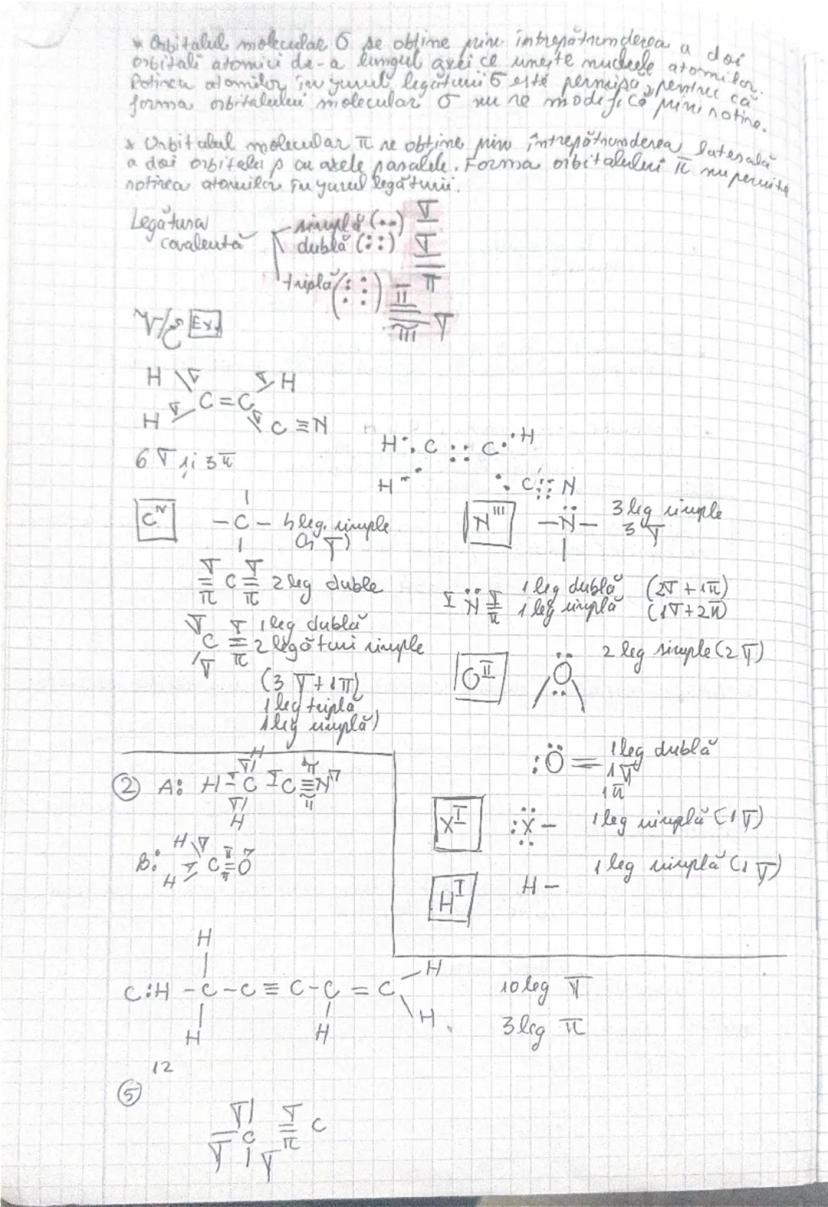 * Orbitalul molecular σ se obține prin întrepătrunderea a doi
orbitali atomici de-a lungul axei ce unește nucleele atomilor.
Rotirea atomilor în jurul legăturii σ este permisă, pentru că
forma orbitalului molecular σ nu se modifică prin rotire.
* Orbitalul molecular π se obține prin întrepătrunderea laterală
a doi orbitali p cu axele paralele. Forma orbitalului π nu permite
rotirea atomilor în jurul legăturii.
Legătura covalentă
simplă (••) σ
dublă (::) σ π
triplă (:::) π σ
Ex.
H σ σ H
C = C
H σ σ C ≡ N
6 σ și 3 π
H : C :: C : H
H : : C ::: N
C IV – C – 4 leg. simple
(4 σ)
σ π C σ π 2 leg duble
σ C σ π 1 leg dublă
σ 2 legături simple
(3 σ + 1 π)
1 leg triplă
1 leg simplă)
N III – N – 3 leg simple
3 σ
N σ π 1 leg dublă (2σ + 1π)
1 leg simplă (1σ + 2π)
O II O 2 leg simple (2 σ)
:O = 1 leg dublă
1 σ
1 π
X I :X – 1 leg simplă (1 σ)
H I H – 1 leg simplă (1 σ)
② A: H – C – C ≡ N
H
H
B: H σ C = O
H σ
H
C: H – C – C ≡ C – C = C – H
H H H
10 leg σ
3 leg π
12
⑤
σ σ C σ σ π C